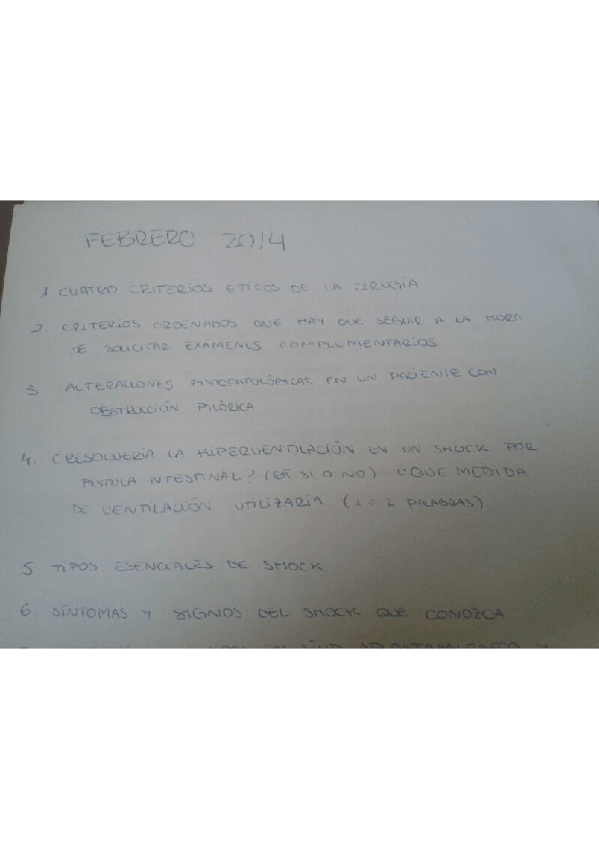 FEBRERO 2014
1. CUATRO CRITERIOS ETICOS DE LA CIRUGÍA
2. CRITERIOS ORDENADOS QUE HAY QUE SEGUIR A LA HORA
DE SOLICITAR EXÁMENES COMPLEMENTARIOS
3. ALTERACIONES FISIOPATOLÓGICAS EN UN PACIENTE CON
OBSTRUCCIÓN PILÓRICA
4. ¿RESOLVERÍA LA HIPERVENTILACIÓN EN UN SHOCK POR
FISTULA INTESTINAL? ( SI O NO) ¿QUE MEDIDA
DE VENTILACIÓN UTILIZARÍA (1 O 2 PALABRAS)
5. TIPOS ESENCIALES DE SHOCK
6. SÍNTOMAS Y SIGNOS DEL SHOCK QUE CONOZCA